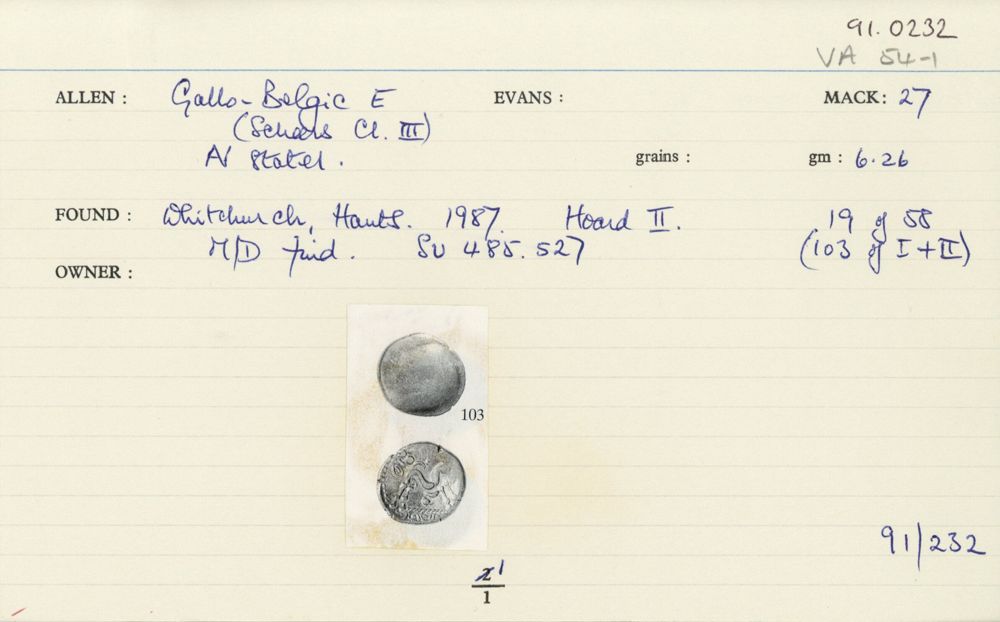 91.0232
VA 54-1
ALLEN : Gallo-Belgic E EVANS : MACK: 27
(Scheers Cl. III)
AV Stater. grains : gm : 6.26
FOUND : Whitchurch, Hants. 1987. Hoard II. 19 of 58
M/D find. SU 485.527 (103 of I + II)
OWNER :
103
91/232
1
1